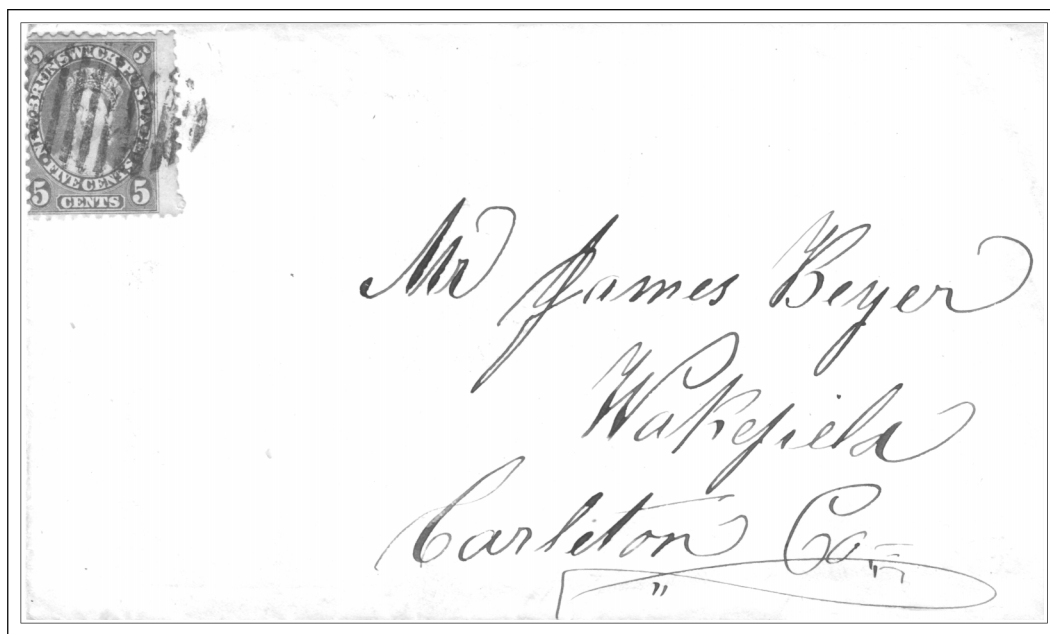 5 5
NEW BRUNSWICK POSTAGE
FIVE CENTS
5 CENTS 5
Mr James Beyer
Wakefield
Carleton Co